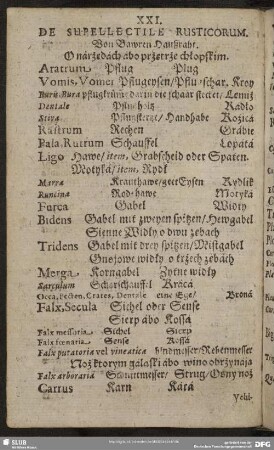 XXI.
DE SUPELLECTILE RUSTICORUM.
Von Bawren Haußraht.
O nárzędách ábo przętrze chłopskim.
Aratrum Pflug Plug
Vomis, Vomer Pflugeysen/Pflugschar, Kroy
Buris Bura pflugkrümme darin die schaar stecket/ Lemiß
Dentale Pflugholtz Rádlo
Stiva Pflugstertz/Handhabe Kozicá
Rastrum Rechen Grábie
Pala. Rutrum Schauffel Łopátá
Ligo Hawe/item, Grabscheid oder Spaten.
Motyká/item, Rydl
Marra Krauthawe/geetEysen Rydlik
Runcina Rodehawe Motyká
Furca Gabel Widły
Bidens Gabel mit zweyen spitzen/Hewgabel
Sienne Widły o dwu zębách
Tridens Gabel mit drey spitzen/Mistgabel
Gnojowe widły o trzech zębách
Merga Korngabel Zytne widły
Sarculum Scharschauffel Krácá
Occa, Pecten, Crates, Dentale eine Ege/ Broná
Falx, Secula Sichel oder Sense
Sierp ábo Kossá
Falx messoria Sichel Sierp
Falx fœnaria Sense Kossá
Falx putatoria vel vineatica Rebenmesser
Noż ktorym gáłąski ábo wino obrzynáją
Falx arboraria Schnittmesser/Strug/Ośny noż
Carrus Karn Kárá
Vehi-
SLUB
DFG